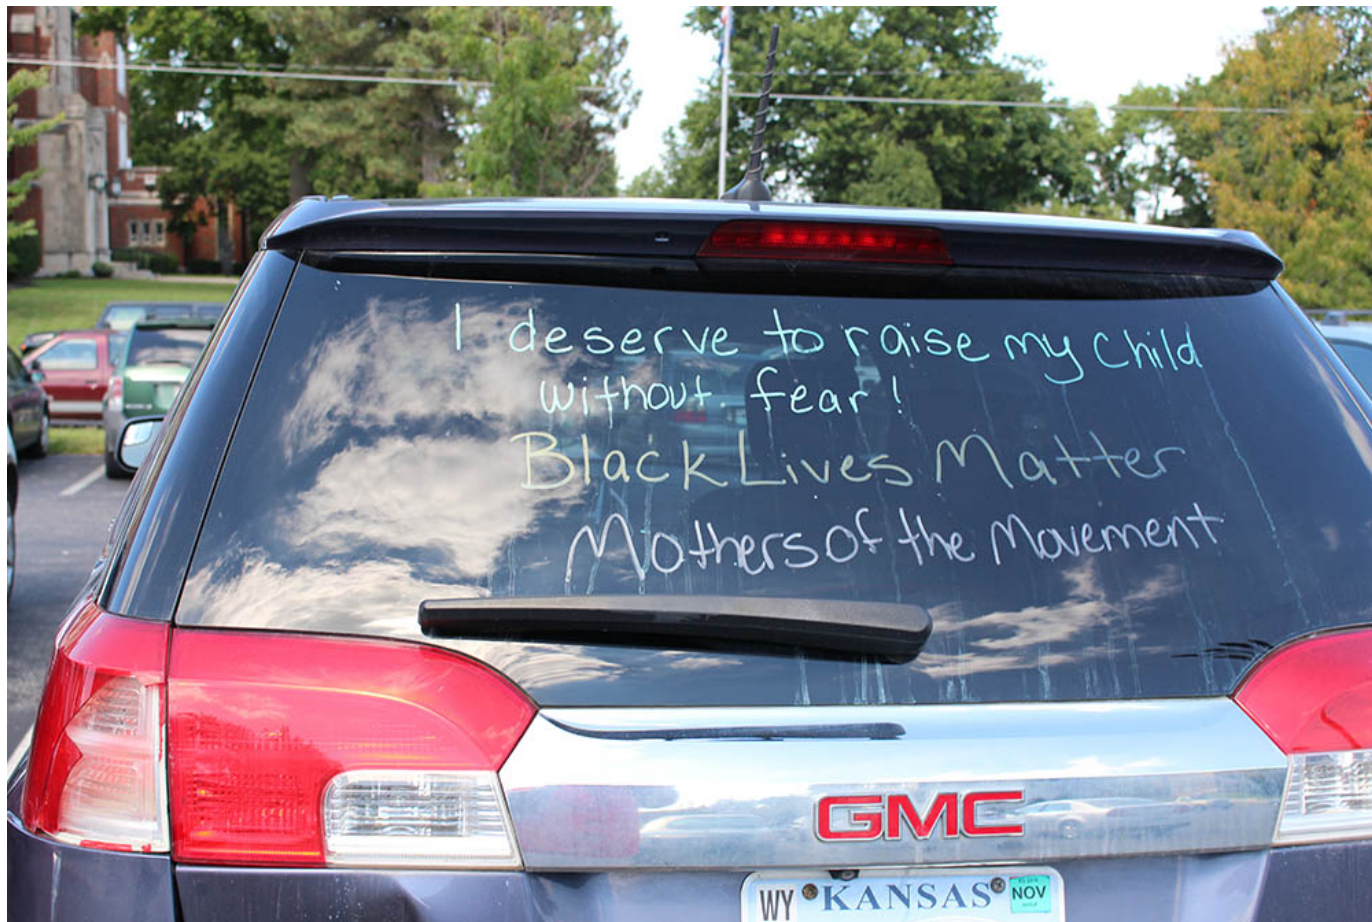 I deserve to raise my child
without fear!
Black Lives Matter
Mothers of the Movement
GMC
WY KANSAS NOV